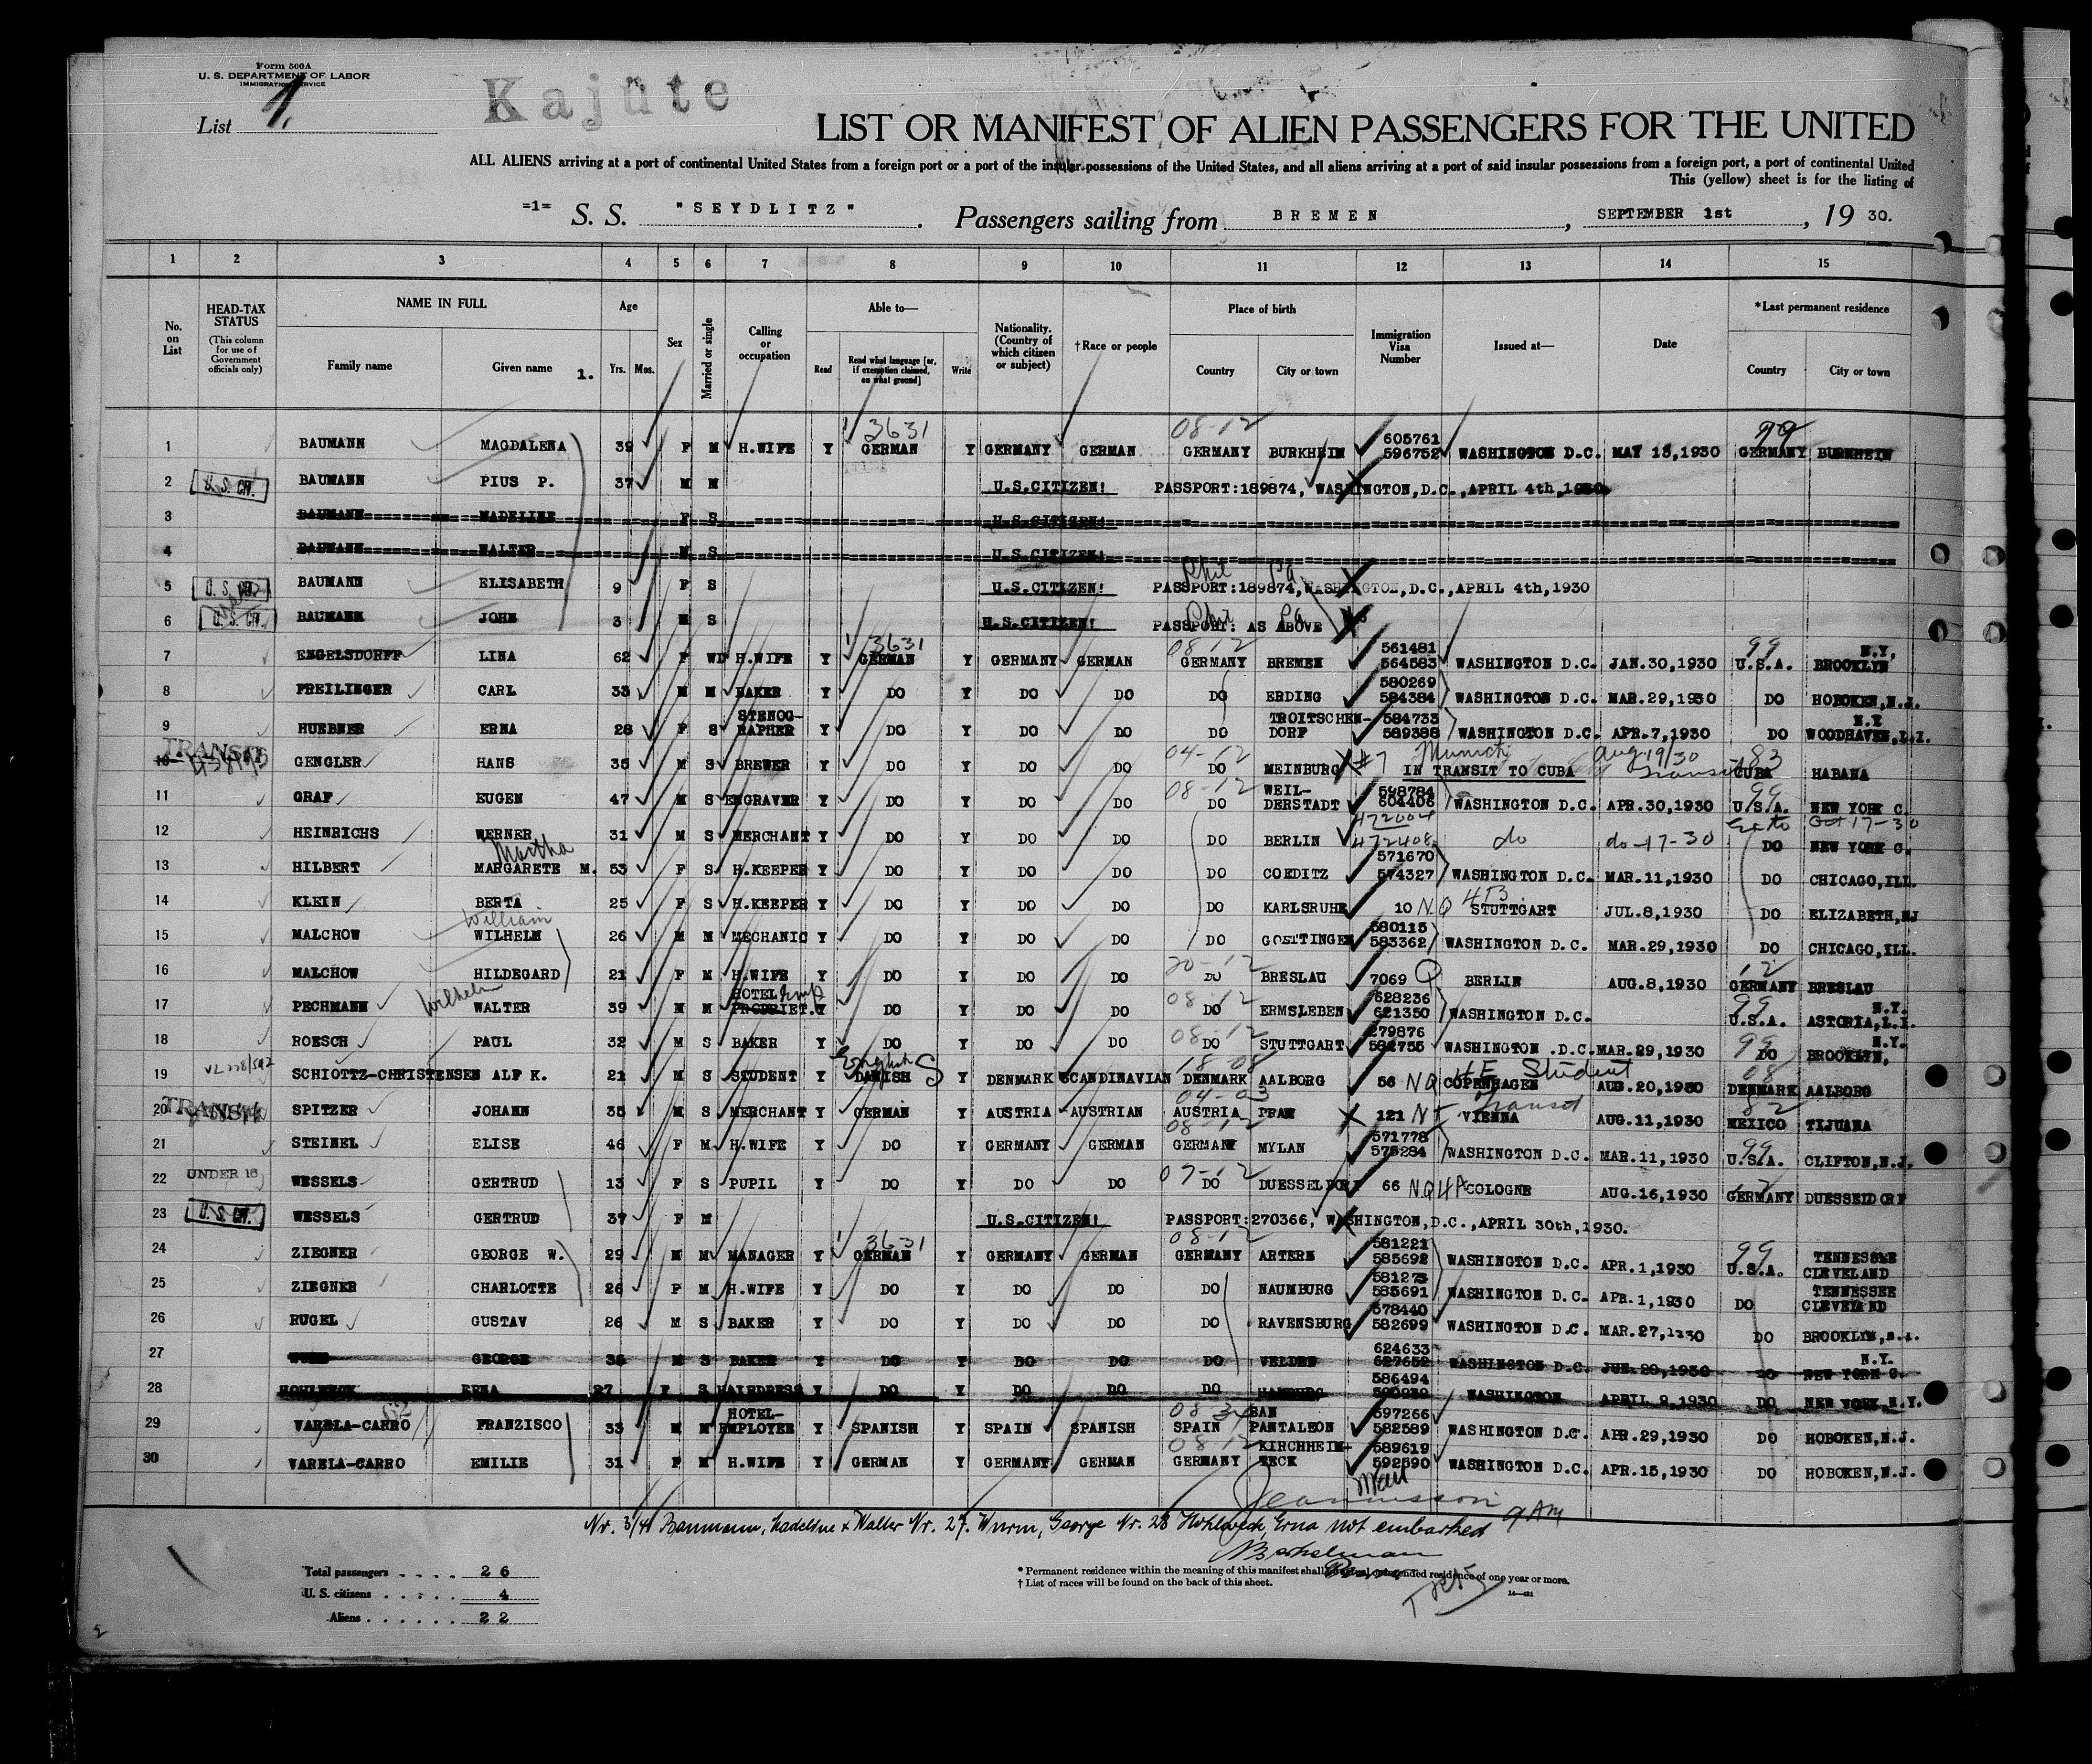 Form 500A
U. S. DEPARTMENT OF LABOR
IMMIGRATION SERVICE
List 1.
Kajüte
LIST OR MANIFEST OF ALIEN PASSENGERS FOR THE UNITED
ALL ALIENS arriving at a port of continental United States from a foreign port or a port of the insular possessions of the United States, and all aliens arriving at a port of said insular possessions from a foreign port, a port of continental United
This (yellow) sheet is for the listing of
=1= S. S. "SEYDLITZ". Passengers sailing from BREMEN, SEPTEMBER 1st, 19 30.
1 2 3 4 5 6 7 8 9 10 11 12 13 14 15
No. on List HEAD-TAX STATUS (This column for use of Government officials only) NAME IN FULL Family name Given name 1. Age Yrs. Mos. Sex Married or single Calling or occupation Able to— Read Read what language [or, if exemption claimed, on what ground] Write Nationality. (Country of which citizen or subject) †Race or people Place of birth Country City or town Immigration Visa Number Issued at— Date *Last permanent residence Country City or town
3631 08-12 99
1 BAUMANN MAGDALENA 39 F M H.WIFE Y GERMAN Y GERMANY GERMAN GERMANY BURKHEIM 605761 596752 WASHINGTON D.C. MAY 13,1930 GERMANY BURKHEIM
2 U.S. CIT. BAUMANN PIUS P. 37 M M U.S.CITIZEN! PASSPORT:189874, WASHINGTON,D.C.,APRIL 4th,1930
3 BAUMANN MADELINE F S U.S.CITIZEN!
4 BAUMANN WALTER M S U.S.CITIZEN!
Phil Pa
5 U.S. CIT. BAUMANN ELISABETH 9 F S U.S.CITIZEN! PASSPORT:189874,WASHINGTON,D.C.,APRIL 4th,1930
6 U.S. CIT. BAUMANN JOHN 3 M S U.S.CITIZEN! PASSPORT: AS ABOVE Phil Pa
3631 08-12 99
7 ENGELSDORFF LINA 62 F WD H.WIFE Y GERMAN Y GERMANY GERMAN GERMANY BREMEN 561481 564583 WASHINGTON D.C. JAN.30,1930 U.S.A. N.Y. BROOKLYN
8 FREILINGER CARL 33 M M BAKER Y DO Y DO DO DO ERDING 580269 584384 WASHINGTON D.C. MAR.29,1930 DO HOBOKEN,N.J.
9 HUEBNER ERNA 28 F S STENOG-RAPHER Y DO Y DO DO DO TROITSCHEN-DORF 584733 589388 WASHINGTON D.C. APR.7,1930 DO N.Y WOODHAVEN,L.I.
TRANSIT 04-12 Munich Aug 19/30 Transit 83
10 GENGLER HANS 35 M S BREWER Y DO Y DO DO DO MEINBURG #7 IN TRANSIT TO CUBA CUBA HABANA
08-12 99
11 GRAF EUGEN 47 M S ENGRAVER Y DO Y DO DO DO WEIL-DERSTADT 598784 604406 WASHINGTON D.C. APR.30,1930 U.S.A. NEW YORK C.
12 HEINRICHS WERNER 31 M S MERCHANT Y DO Y DO DO DO BERLIN 472004 472408 do do-17-30 Oct 17-30 DO NEW YORK C.
Martha
13 HILBERT MARGARETE M. 53 F S H.KEEPER Y DO Y DO DO DO COEDITZ 571670 574327 WASHINGTON D.C. MAR.11,1930 DO CHICAGO,ILL.
14 KLEIN BERTA 25 F S H.KEEPER Y DO Y DO DO DO KARLSRUHE 10 NQ STUTTGART JUL.8,1930 DO ELIZABETH,NJ
William
15 MALCHOW WILHELM 26 M M MECHANIC Y DO Y DO DO DO GOETTINGEN 580115 583362 WASHINGTON D.C. MAR.29,1930 DO CHICAGO,ILL.
20-12 12
16 MALCHOW HILDEGARD 21 F M H.WIFE Y DO Y DO DO DO BRESLAU 7069 Q BERLIN AUG.8,1930 GERMANY BRESLAU
Wilhelm 08-12 99
17 PECHMANN WALTER 39 M M HOTEL PROPRIET. Y DO Y DO DO DO ERMSLEBEN 628236 621350 WASHINGTON D.C. U.S.A. N.Y. ASTORIA,L.I.
08-12 99
18 ROESCH PAUL 32 M S BAKER Y DO Y DO DO DO STUTTGART 279876 582755 WASHINGTON .D.C. MAR.29,1930 DO N.Y. BROOKLYN,
English 18-08 Student 08
19 SCHIOTTZ-CHRISTENSEN ALF K. 21 M S STUDENT Y DANISH Y DENMARK SCANDINAVIAN DENMARK AALBORG 56 NQ 4E COPENHAGEN AUG.20,1930 DENMARK AALBORG
TRANSIT 04-03 Transit 82
20 SPITZER JOHANN 35 M S MERCHANT Y GERMAN Y AUSTRIA AUSTRIAN AUSTRIA 121 VIENNA AUG.11,1930 MEXICO TIJUANA
08-12 99
21 STEINEL ELISE 46 F M H.WIFE Y DO Y GERMANY GERMAN GERMANY MYLAN 571778 575284 WASHINGTON D.C. MAR.11,1930 U.S.A. CLIFTON,N.J.
07-12 12
22 UNDER 16 WESSELS GERTRUD 13 F S PUPIL Y DO Y DO DO DO DUESSELDORF 66 NQ 4A COLOGNE AUG.16,1930 GERMANY DUESSELDORF
23 U.S. CIT. WESSELS GERTRUD 37 F M U.S.CITIZEN! PASSPORT:270366, WASHINGTON,D.C.,APRIL 30th,1930.
3631 08-12 99
24 ZIEGNER GEORGE W. 29 M M MANAGER Y GERMAN Y GERMANY GERMAN GERMANY ARTERN 581221 585692 WASHINGTON D.C. APR.1,1930 U.S.A. TENNESSEE CLEVELAND
25 ZIEGNER CHARLOTTE 26 F M H.WIFE Y DO Y DO DO DO NAUMBURG 581273 585691 WASHINGTON D.C. APR.1,1930 DO TENNESSEE CLEVELAND
26 RUGEL GUSTAV 26 M S BAKER Y DO Y DO DO DO RAVENSBURG 578440 582699 WASHINGTON D.C. MAR.27,1930 DO BROOKLYN,N.Y.
27 GEORGE 35 M S BAKER Y DO Y DO DO DO VELDEN 624633 627652 WASHINGTON D.C. JUN.20,1930 DO N.Y. NEW YORK C.
28 HOHLWECK ERNA 27 F S HAIRDRESS Y DO Y DO DO DO HAMBURG 586494 590930 WASHINGTON APRIL 9,1930 DO NEW YORK,N.Y.
29 VARELA-CARRO FRANZISCO 33 M M HOTEL-EMPLOYER Y SPANISH Y SPAIN SPANISH SPAIN SAN PANTALEON 597266 582589 WASHINGTON D.C. APR.29,1930 DO HOBOKEN,N.J.
08-12
30 VARELA-CARRO EMILIE 31 F M H.WIFE Y GERMAN Y GERMANY GERMAN GERMANY KIRCHHEIM-TECK 589619 592590 WASHINGTON D.C. APR.15,1930 DO HOBOKEN,N.J.
Nr. 3/4 Baumann, Madeline + Walter Nr. 27. Wurm, George Nr. 28 Hohlweck, Erna not embarked 9 AM
Total passengers . . . . 26
U. S. citizens . . . . . 4
Aliens . . . . . . 22
* Permanent residence within the meaning of this manifest shall be actual or intended residence of one year or more.
† List of races will be found on the back of this sheet.